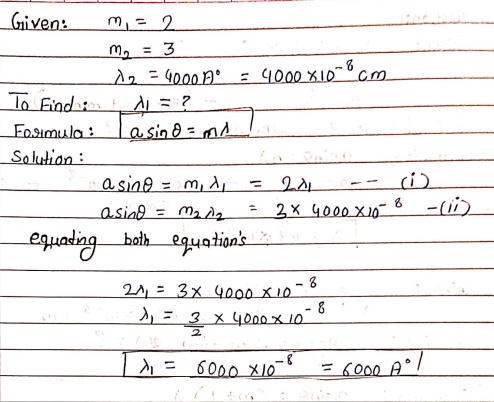 Given: m₁ = 2
m₂ = 3
λ₂ = 4000 A° = 4000 × 10⁻⁸ cm
To Find : λ₁ = ?
Formula : a sin θ = mλ
Solution :
a sin θ = m₁ λ₁ = 2λ₁ -- (i)
a sin θ = m₂ λ₂ = 3 × 4000 × 10⁻⁸ - (ii)
equating both equation's
2λ₁ = 3 × 4000 × 10⁻⁸
λ₁ = 3/2 × 4000 × 10⁻⁸
λ₁ = 6000 × 10⁻⁸ = 6000 A°